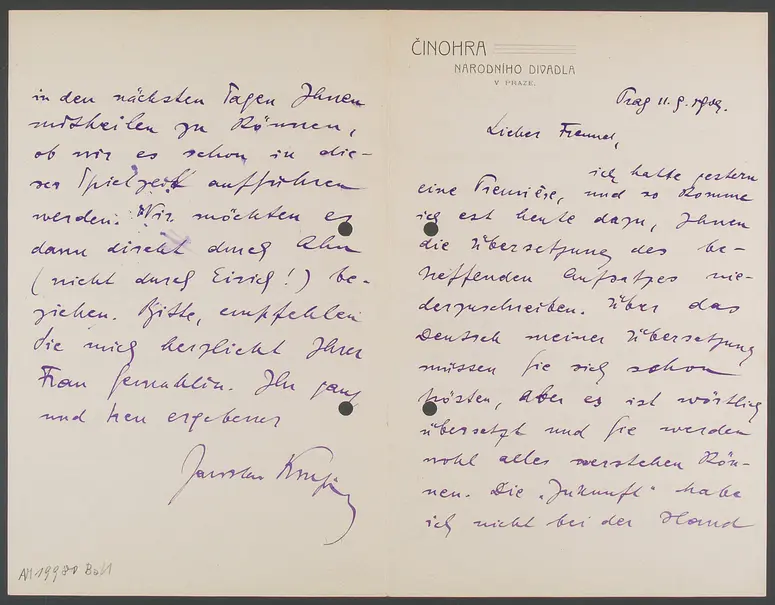 ČINOHRA
NÁRODNÍHO DIVADLA
V PRAZE.
Prag 11. 9. 1909.
Lieber Freund,
ich hatte gestern
eine Première, und so komme
ich est heute dazu, Ihnen
die Übersetzung des be-
treffenden Aufsatzes nie-
derzuschreiben. Über das
Deutsch meiner Übersetzung
müssen Sie sich schon
trösten, aber es ist wörtlich
übersetzt und Sie werden
wohl alles verstehen kön-
nen. Die „Zukunft" habe
ich nicht bei der Hand
in den nächsten Tagen Ihnen
mitheilen zu können,
ob wir es schon in die-
ser Spielzeit aufführen
werden. Wir möchten es
dann direkt durch Ahn
(nicht durch Eirich!) be-
ziehen. Bitte, empfehlen
Sie mich herzlichst Ihrer
Frau Gemahlin. Ihr ganz
und treu ergebener
Jaroslav
AM 19980 Ba/1